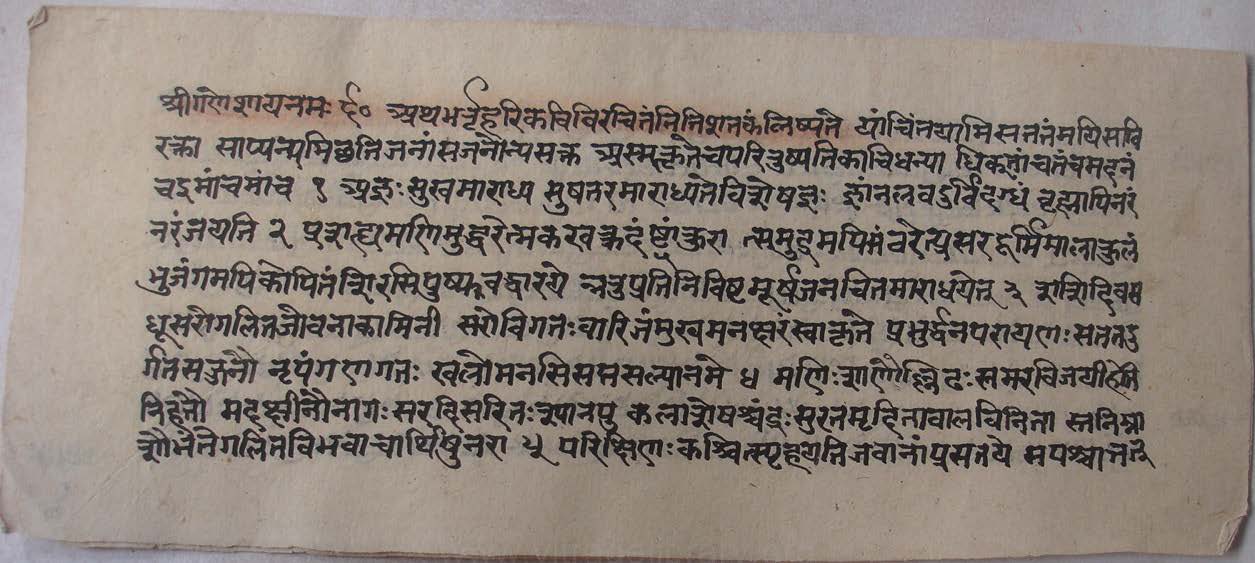 श्रीगणेशायनमः ६० अथभर्तृहरिकविविरचितंनितिशतकंलिष्यते यांचिंतयामिसततंमयिसावि
रक्ता साप्यन्यमिछतिजनांसजनोन्यसक्त अस्मत्कृतेचपरितुष्यतिकाचिधन्या धिक्तांचतंचमदनं
चइमांचमांच १ अज्ञः सुखमाराध्य सुषतरमाराध्यतेविशेषज्ञः ज्ञांनलवदुर्विदग्धं बृह्मापितरं
नरंजयति २ प्रशह्यमणिमुद्धरेत्मकरवक्त्रदंष्ट्रांकुरा त्समुद्रमपिसंचरेत्प्रसरदूर्मिमालाकुलं
भुजंगमपिकोपितंशिरसिपुष्पवद्धारये न्नतुप्रतिनिविष्टमूर्षजनचितमाराधयेत् ३ शशिदिवस
धूसरोगलितजौवनाकामिनी सरोविगतः वारिजंमुखमनक्षरंस्वाकृते प्रभुर्द्धनपरायणः सततदु
र्गतसज्जनो नृपंगणगतः खलोमनसिसप्तसल्यानिमे ४ मणिः शाणोल्लिढः समरविजयीहेति
निहतो मदक्षीनोनागः सरत्सिसरितः श्यानपु कलाशेषश्चंद्रः सुरतमृदितावालवनिता स्तनिम्ना
शोभंतेगलितविभवाचार्थिषुनरा ५ परिक्षिणः कश्चित्स्पृहयतिजवानांप्रसतये सपश्चात्